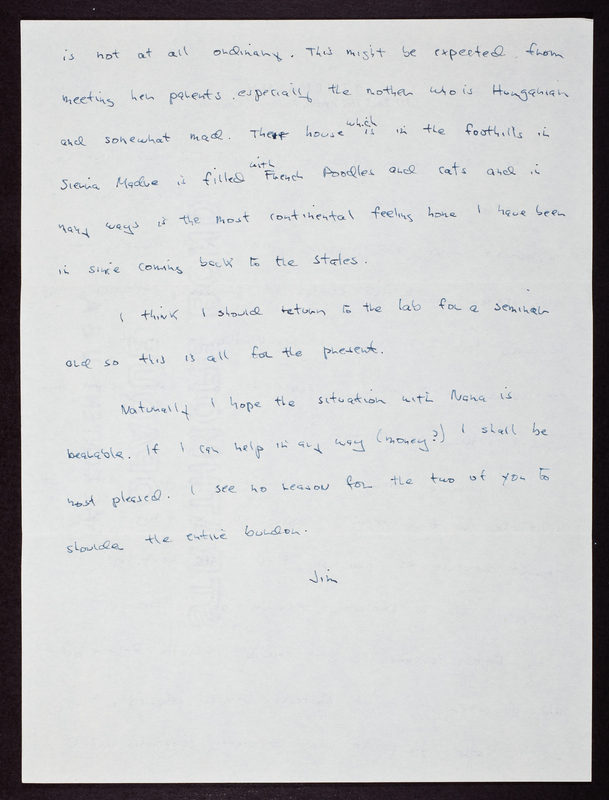 is not at all ordinary. This might be expected from
meeting her parents especially the mother who is Hungarian
and somewhat mad. Their house which is in the foothills in
Sierra Madre is filled with French Poodles and cats and in
many ways is the most continental feeling home I have been
in since coming back to the states.
I think I should return to the lab for a seminar
and so this is all for the present.
Naturally I hope the situation with Nana is
bearable. If I can help in any way (money?) I shall be
most pleased. I see no reason for the two of you to
shoulder the entire burdon.
Jim